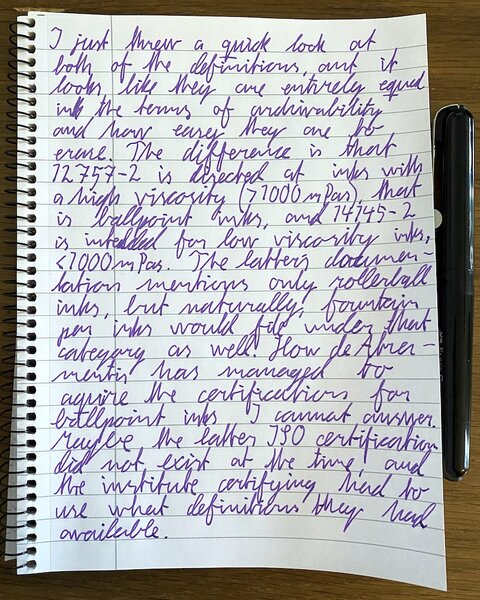 I just threw a quick look at
both of the definitions, and it
looks like they are entirely equal
in the terms of archivability
and how easy they are to
erase. The difference is that
12757-2 is directed at inks with
a high viscosity (>1000 mPas), that
is ballpoint inks, and 14145-2
is intended for low viscosity inks,
<1000 mPas. The latters documen-
tation mentions only rollerball
inks, but naturally, fountain
pen inks would file under that
category as well. How de Atra-
mentis has managed to
aquire the certifications for
ballpoint inks I cannot answer.
Maybe the latter ISO certification
did not exist at the time, and
the institute certifying had to
use what definitions they had
available.